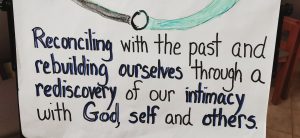 Reconciling with the past and
rebuilding ourselves through a
rediscovery of our intimacy
with God, self and others.